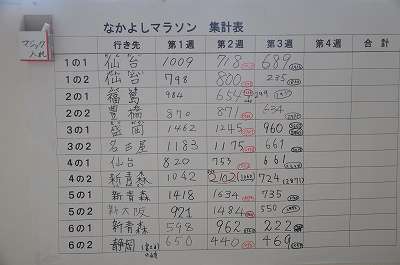 マジック入れ
なかよしマラソン 集計表
行き先 第1週 第2週 第3週 第4週 合計
1の1 仙台 1009 718 689
1の2 仙台 798 800 235
2の1 福島 984
2の2 豊橋 870 871 634
3の1 盛岡 1462 1245 960
3の2 名古屋 1183 1175 661
4の1 仙台 820 753 661
4の2 新青森 1042 2102 724
5の1 新青森 1418 1634 735
5の2 新大阪 921 1484 550
6の1 新青森 598 962 222
6の2 静岡 650 440 469